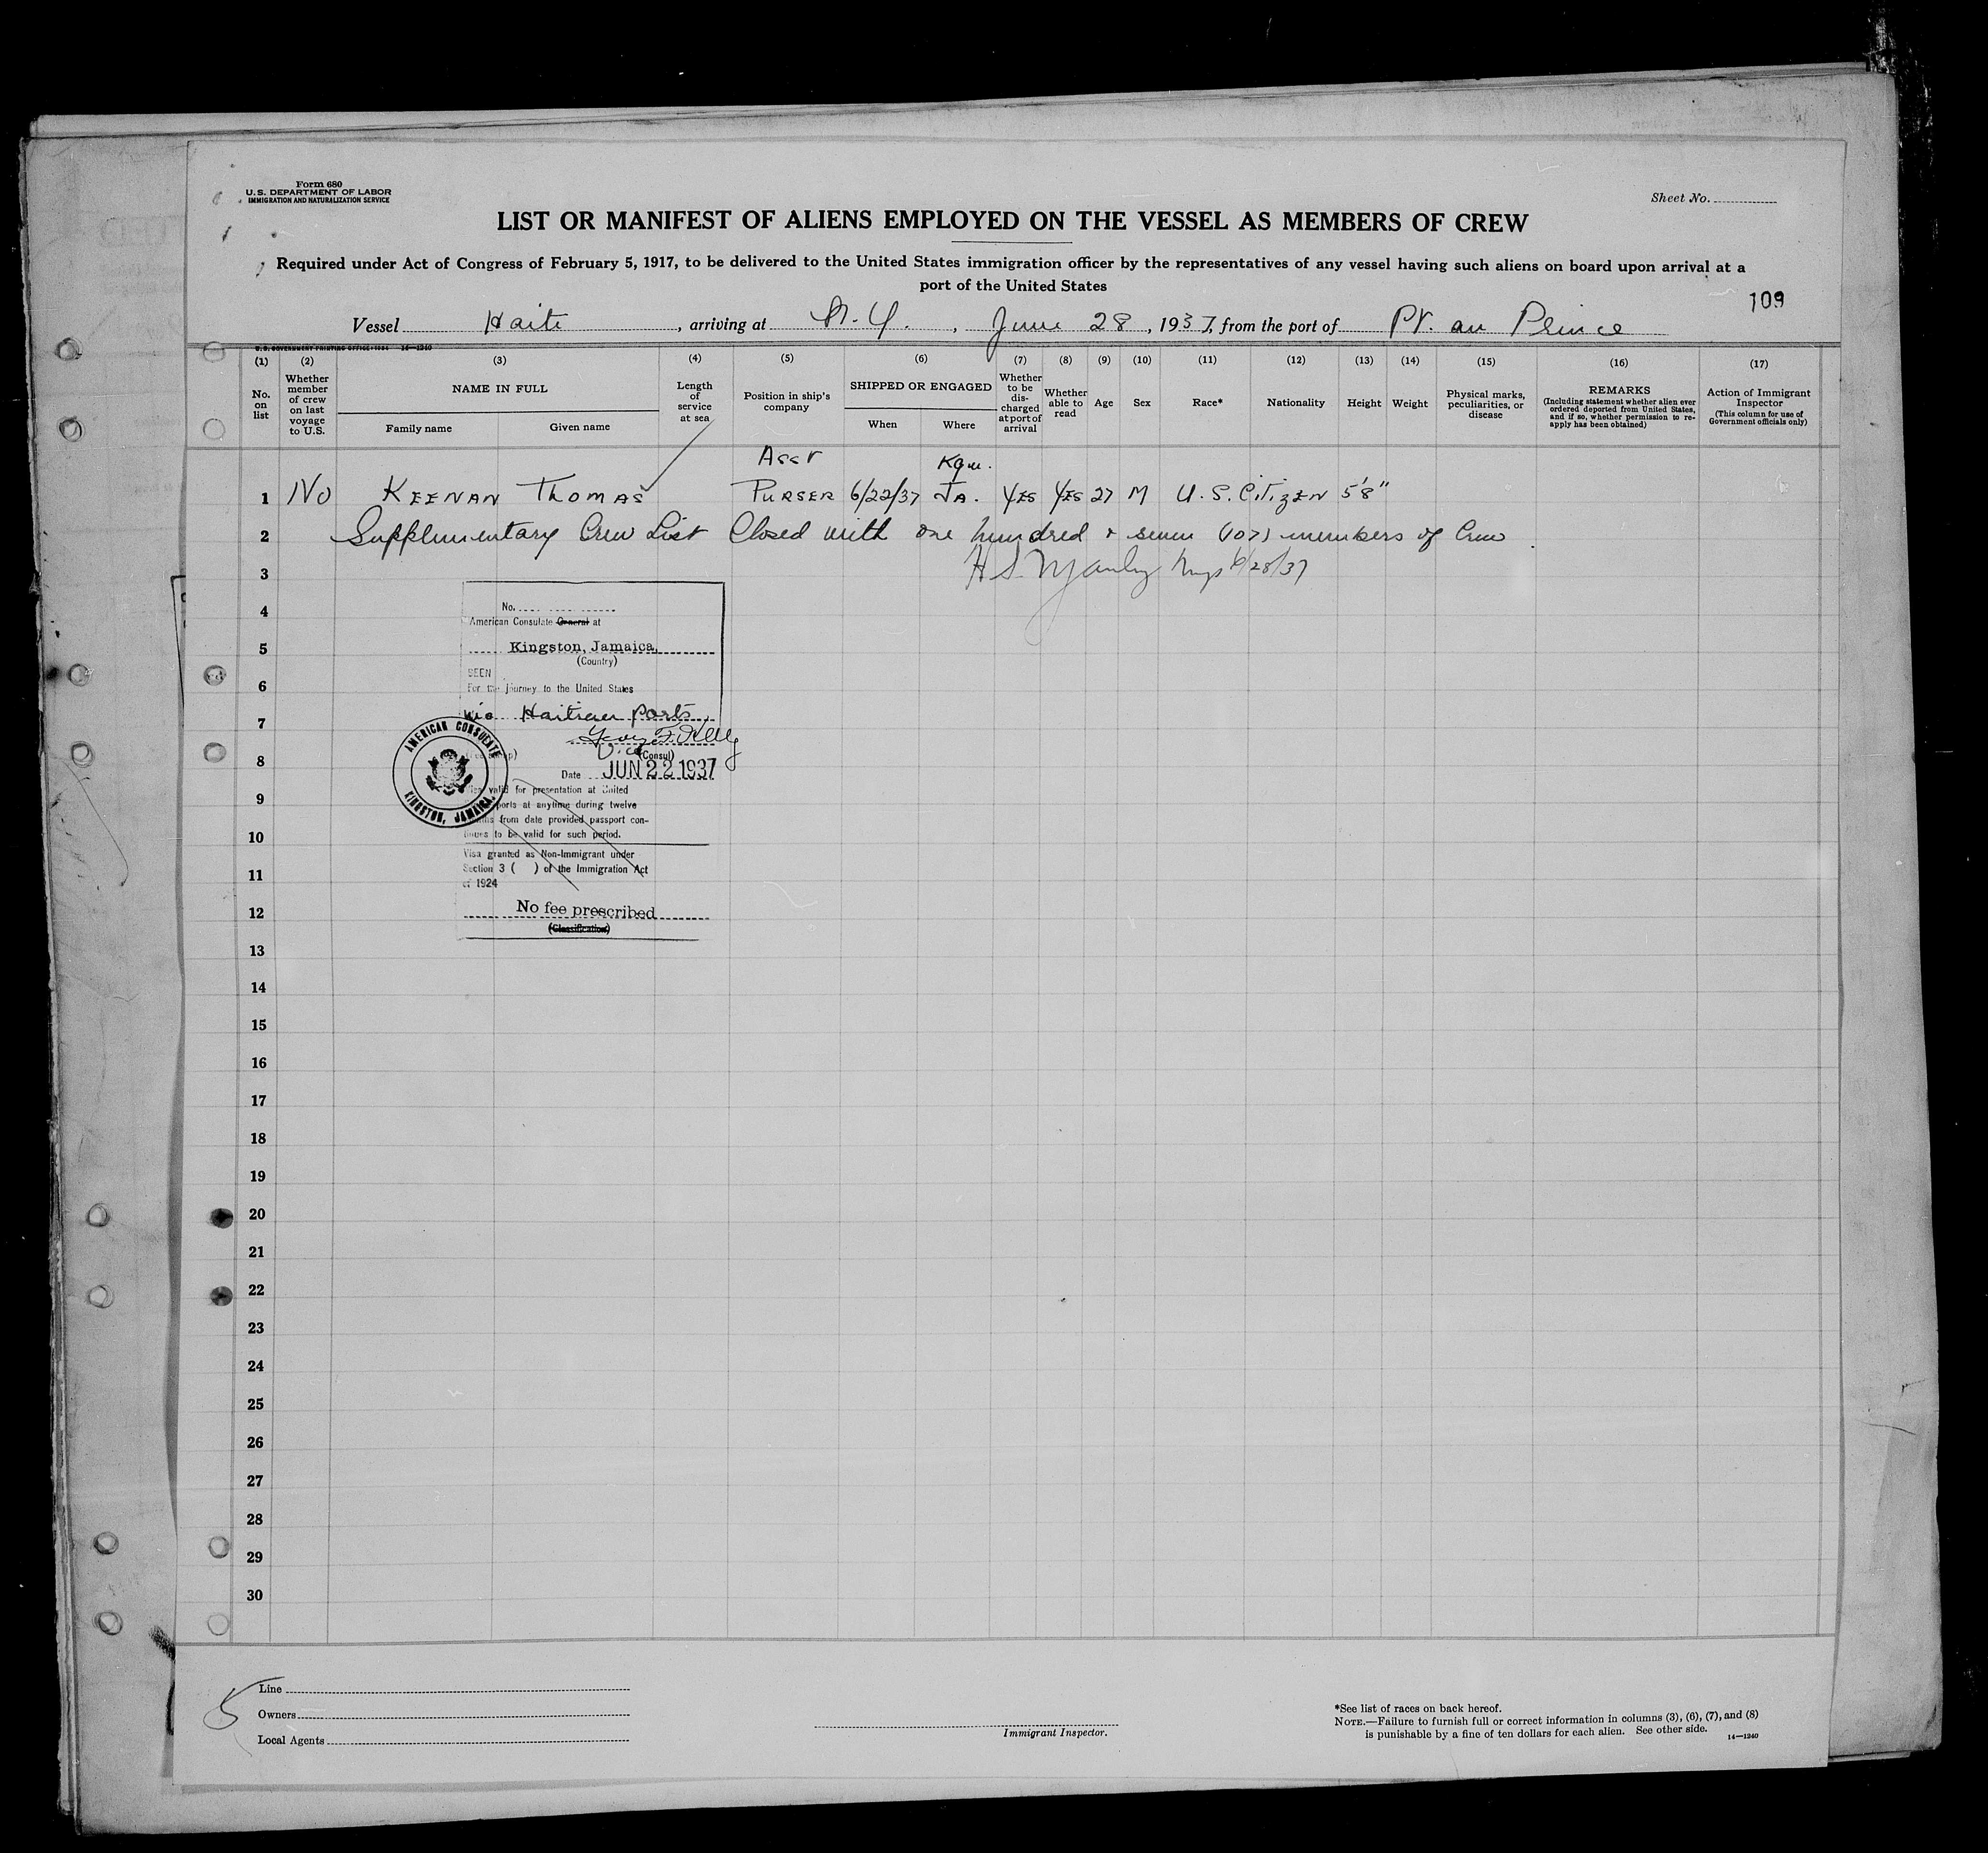 Form 680
U.S. DEPARTMENT OF LABOR
IMMIGRATION AND NATURALIZATION SERVICE
Sheet No.
LIST OR MANIFEST OF ALIENS EMPLOYED ON THE VESSEL AS MEMBERS OF CREW
Required under Act of Congress of February 5, 1917, to be delivered to the United States immigration officer by the representatives of any vessel having such aliens on board upon arrival at a
port of the United States
109
Vessel Haiti, arriving at N.Y., June 28, 1937, from the port of Pt. au Prince
U.S. GOVERNMENT PRINTING OFFICE: 1934 14—1240
(1) (2) (3) (4) (5) (6) (7) (8) (9) (10) (11) (12) (13) (14) (15) (16) (17)
No. on list
Whether member of crew on last voyage to U.S.
NAME IN FULL
Family name
Given name
Length of service at sea
Position in ship's company
SHIPPED OR ENGAGED
When
Where
Whether to be discharged at port of arrival
Whether able to read
Age
Sex
Race*
Nationality
Height
Weight
Physical marks, peculiarities, or disease
REMARKS
(Including statement whether alien ever ordered deported from United States, and if so, whether permission to re-apply has been obtained)
Action of Immigrant Inspector
(This column for use of Government officials only)
Asst Kgn.
1 No KEENAN THOMAS PURSER 6/22/37 JA. YES YES 27 M U.S. CITIZEN 5'8"
2 Supplimentary Crew List Closed with one hundred & seven (107) members of Crew
3 6/28/37
4
5
6
7
8
9
10
11
12
13
14
15
16
17
18
19
20
21
22
23
24
25
26
27
28
29
30
No.
American Consulate General at
Kingston, Jamaica,
(Country)
SEEN
For the journey to the United States
via Haitian Ports
Vice
(Consul)
Date JUN 22 1937
AMERICAN CONSULATE
KINGSTON, JAMAICA.
valid for presentation at United
ports at anytime during twelve
from date provided passport con-
tinues to be valid for such period.
Visa granted as Non-Immigrant under
Section 3 ( ) of the Immigration Act
of 1924
No fee prescribed
(Classification)
5
Line
Owners
Local Agents
Immigrant Inspector.
*See list of races on back hereof.
NOTE.—Failure to furnish full or correct information in columns (3), (6), (7), and (8)
is punishable by a fine of ten dollars for each alien. See other side.
14—1240